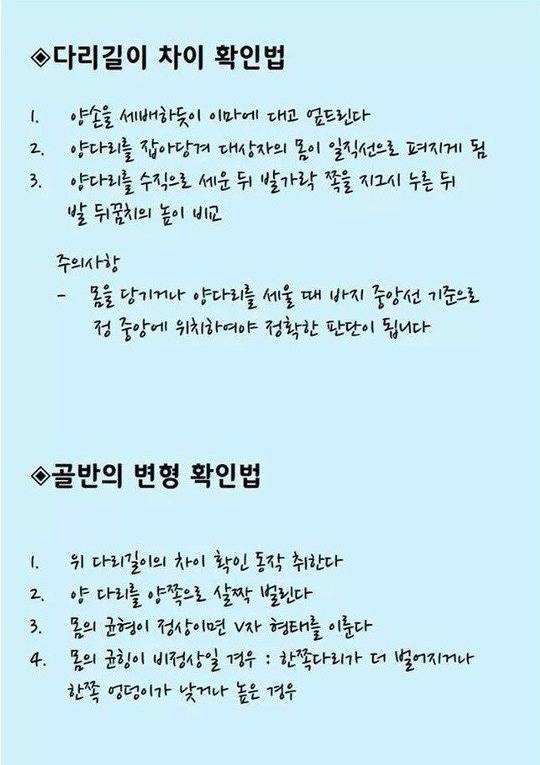 ◈다리길이 차이 확인법
1. 양손을 세배하듯이 이마에 대고 엎드린다
2. 양다리를 잡아당겨 대상자의 몸이 일직선으로 펴지게 됨
3. 양다리를 수직으로 세운 뒤 발가락 쪽을 지그시 누른 뒤
발 뒤꿈치의 높이 비교
주의사항
- 몸을 당기거나 양다리를 세울 때 바지 중앙선 기준으로
정 중앙에 위치하여야 정확한 판단이 됩니다
◈골반의 변형 확인법
1. 위 다리길이의 차이 확인 동작 취한다
2. 양 다리를 양쪽으로 살짝 벌린다
3. 몸의 균형이 정상이면 V자 형태를 이룬다
4. 몸의 균힝이 비정상일 경우 : 한쪽다리가 더 벌어지거나
한쪽 엉덩이가 낮거나 높은 경우